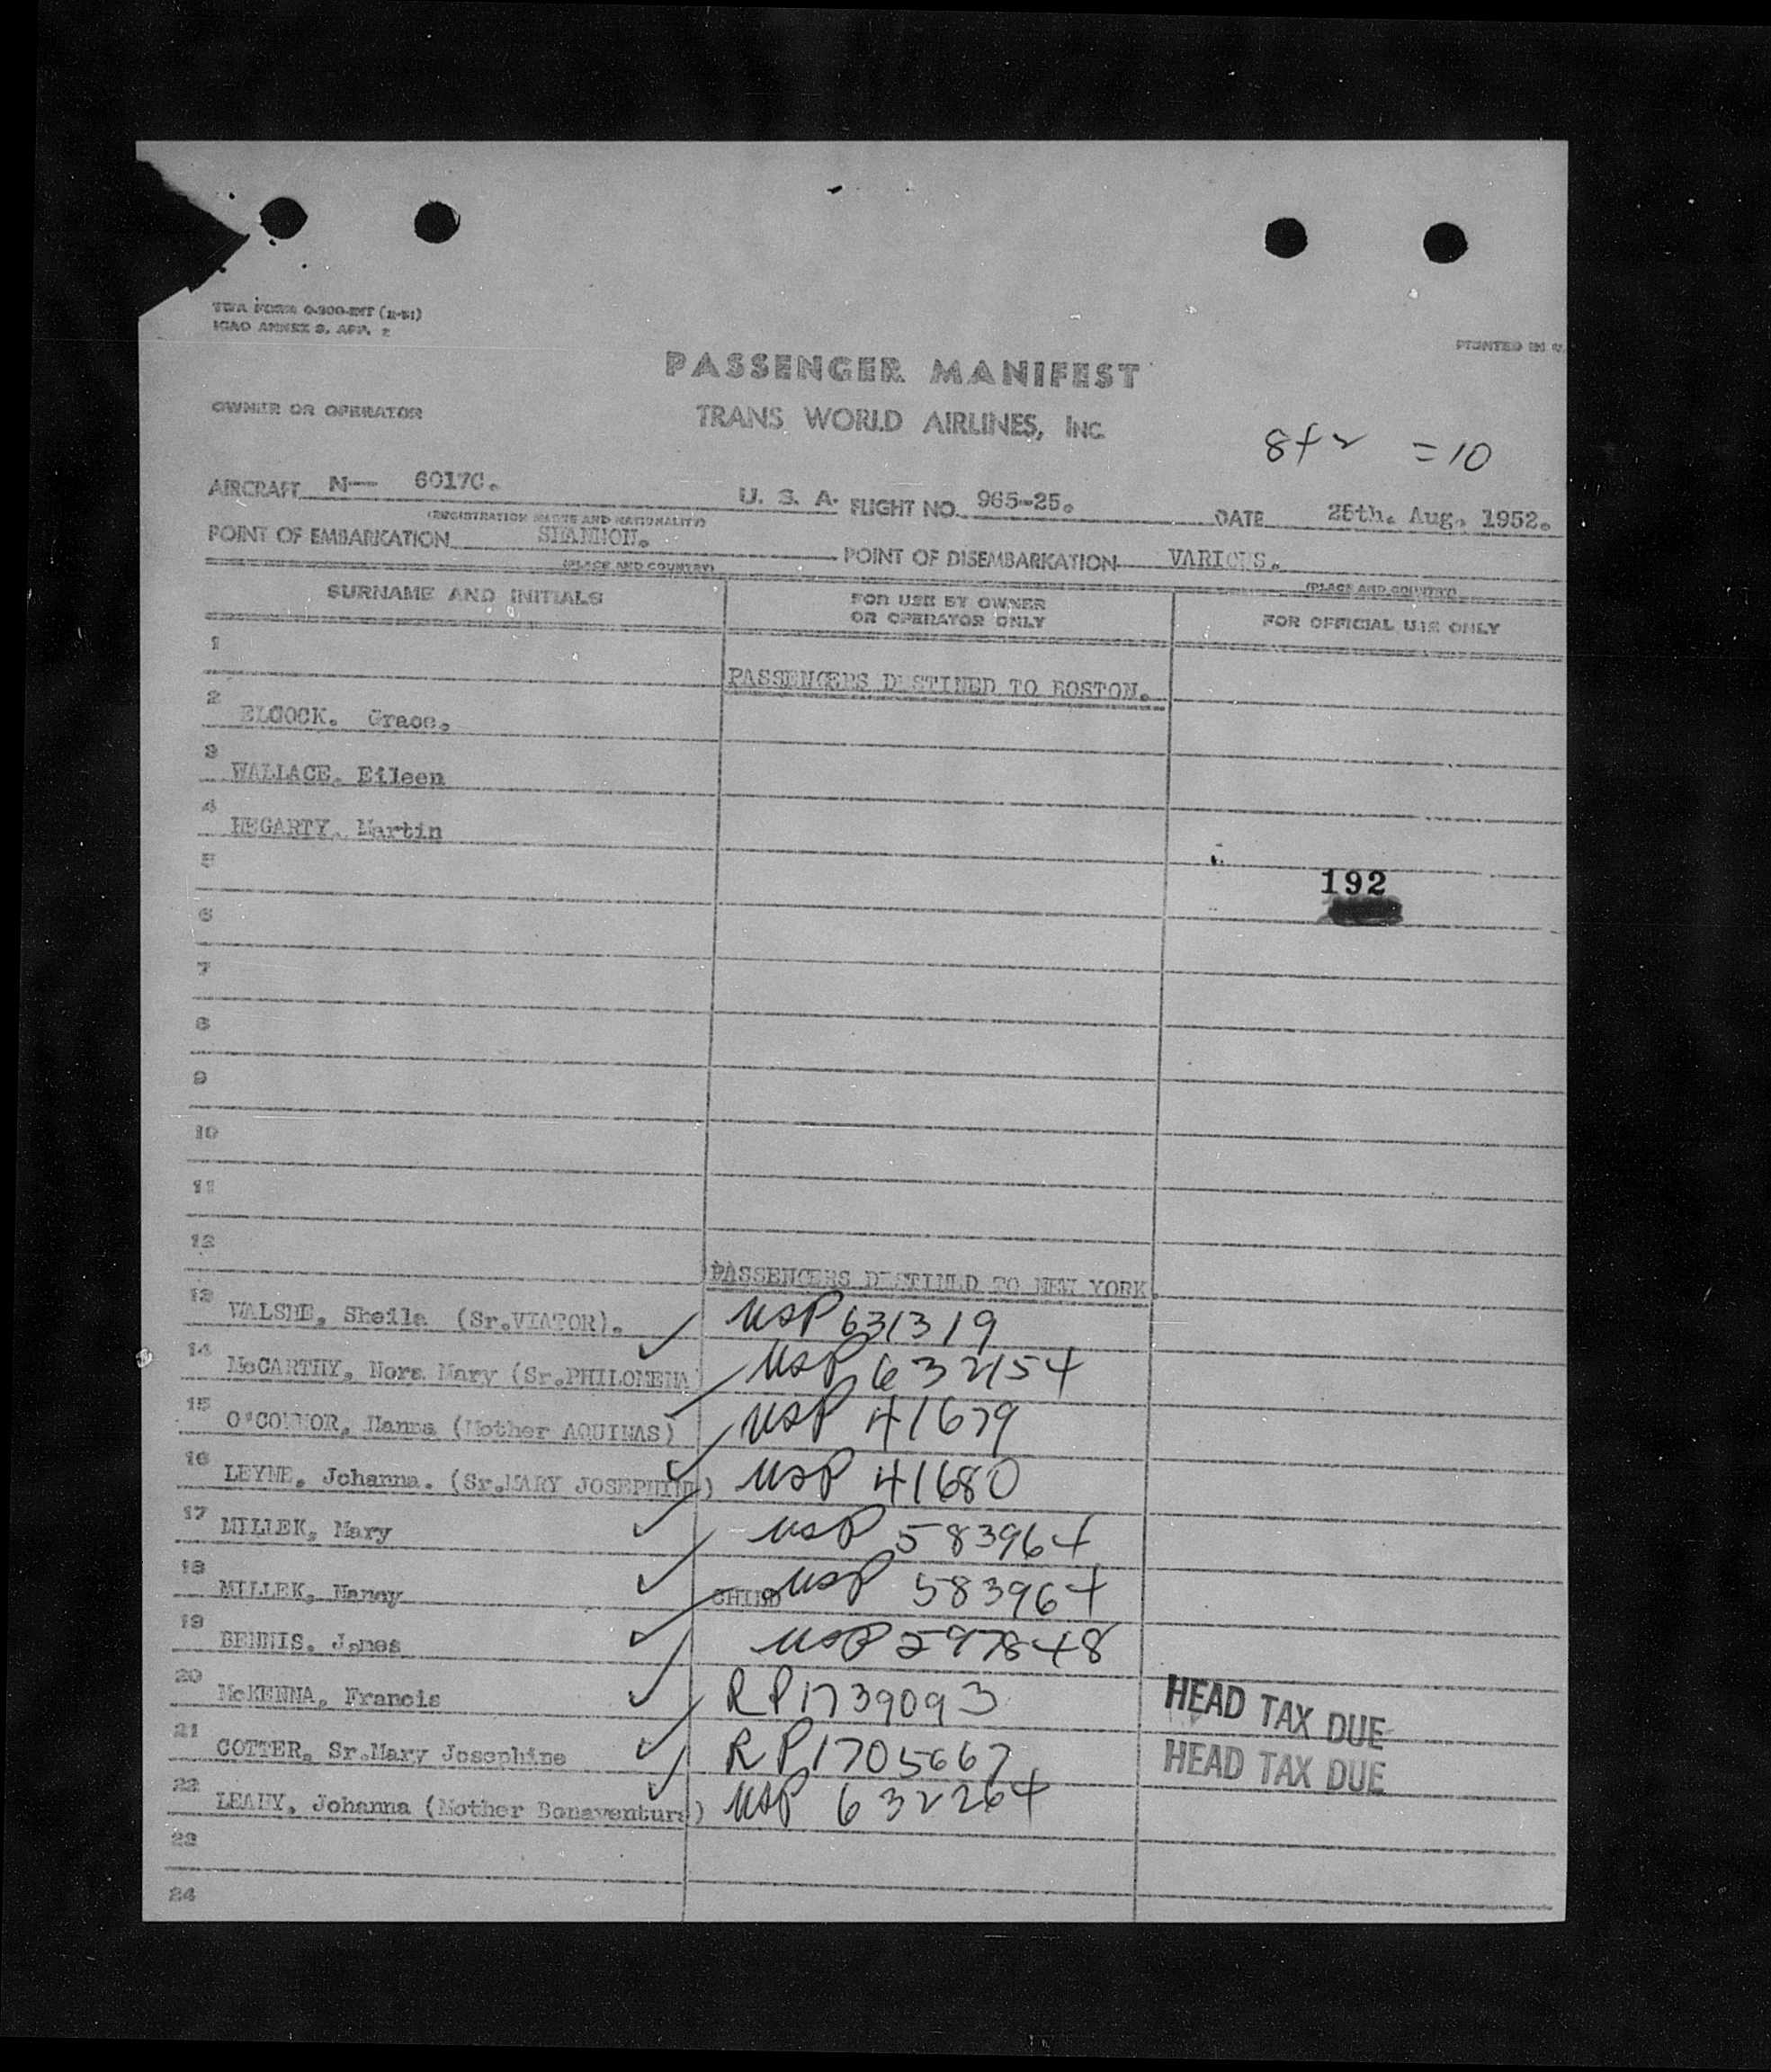 TWA FORM O-300-INT (11-51)
ICAO ANNEX 9, APP. 2
PRINTED IN U.
PASSENGER MANIFEST
OWNER OR OPERATOR TRANS WORLD AIRLINES, INC.
8+2 = 10
AIRCRAFT N— 6017C. U. S. A. FLIGHT NO. 965-25. DATE 25th. Aug. 1952.
(REGISTRATION MARKS AND NATIONALITY)
POINT OF EMBARKATION SHANNON. POINT OF DISEMBARKATION VARIOUS.
(PLACE AND COUNTRY) (PLACE AND COUNTRY)
SURNAME AND INITIALS FOR USE BY OWNER OR OPERATOR ONLY FOR OFFICIAL USE ONLY
1 PASSENGERS DESTINED TO BOSTON.
2 ELCOCK. Grace.
3 WALLACE. Eileen
4 HEGARTY. Martin
5 192
6
7
8
9
10
11
12 PASSENGERS DESTINED TO NEW YORK.
13 WALSHE, Sheila (Sr.VIATOR). USP 631319
14 McCARTHY, Nora Mary (Sr.PHILOMENA) USP 632154
15 O'CONNOR, Hanna (Mother AQUINAS) USP 41679
16 LEYNE, Johanna. (Sr.MARY JOSEPHINE) USP 41680
17 MILLEK, Mary USP 583964
18 MILLEK, Nancy CHILD USP 583964
19 BENNIS. James USP 297848
20 McKENNA, Francis RP 1739093 HEAD TAX DUE
21 COTTER, Sr.Mary Josephine RP 1705667 HEAD TAX DUE
22 LEAHY, Johanna (Mother Bonaventure) USP 632264
23
24